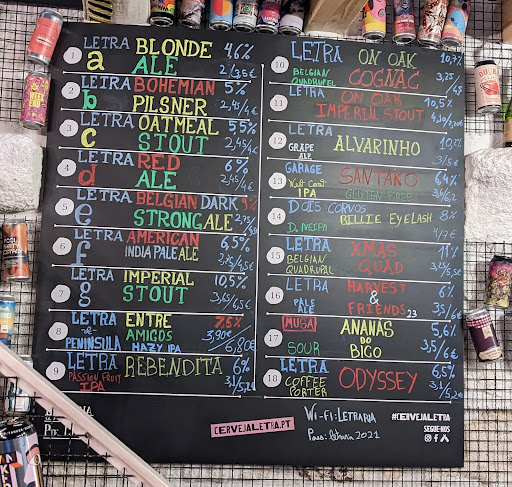 1 LETRA BLONDE 4,6%
a ALE 2/3,5€
2 LETRA BOHEMIAN 5%
b PILSNER 2,45/4€
3 LETRA OATMEAL 5,5%
c STOUT 2,45/4€
4 LETRA RED 6%
d ALE 2,45/4€
5 LETRA BELGIAN DARK
e STRONG ALE
6 LETRA AMERICAN 6,5%
f INDIA PALE ALE
7 LETRA IMPERIAL 10,5%
g STOUT
8 LETRA ENTRE 7,5%
& AMIGOS 3,90€
PENINSULA HAZY IPA 6,80€
9 LETRA REBENDITA 6%
PASSION FRUIT
IPA
10 LETRA ON OAK
BELGIAN COGNAC 3,25/
QUADRUPEL
11 LETRA ON OAK 10,5%
IMPERIAL STOUT
12 LETRA
GRAPE ALVARINHO
ALE 3/5€
13 GARAGE SANTAKO 6,4%
West Coast
IPA GLUTEN FREE
14 DOIS CORVOS 8%
BILLIE EYELASH
D. NEIPA 4/7€
15 LETRA XMAS 11%
BELGIAN QUAD
QUADRUPEL
16 LETRA HARVEST 6%
PALE &
ALE FRIENDS 23 3,5/6€
17 MUSA ANANAS 5,6%
DO
SOUR BICO 3,5/6€
18 LETRA 6,5%
COFFEE ODYSSEY
PORTER
CERVEJALETRA.PT
Wi-Fi: LETRARIA
Pass: 2021
#CERVEJALETRA
SEGUE-NOS